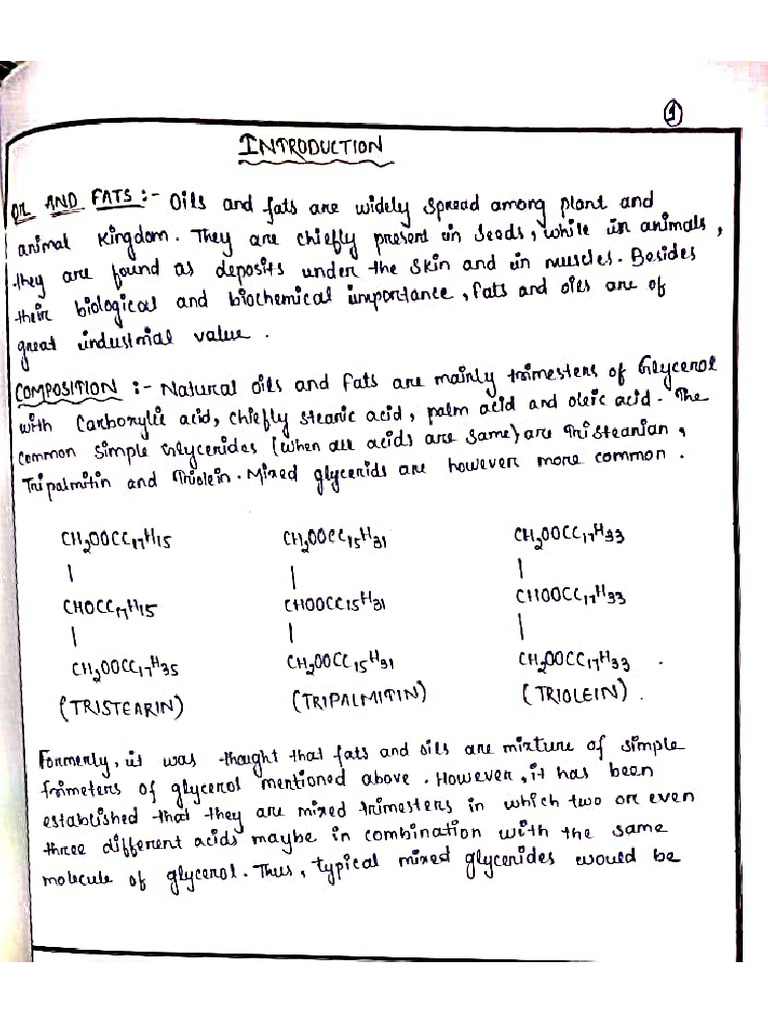 1
INTRODUCTION
OIL AND FATS :- Oils and fats are widely spread among plant and
animal kingdom. They are chiefly present in seeds, while in animals,
they are found as deposits under the skin and in muscles. Besides
their biological and biochemical importance, fats and oies are of
great industrial value.
COMPOSITION :- Natural oils and fats are mainly trimesters of Glycerol
with Carboxylic acid, chiefly stearic acid, palm acid and oleic acid. The
common simple Glycerides (when all acids are same) are Tristeanian,
Tripalmitin and Triolein. Mixed glycerids are however more common.
CH2OOCC17H15 CH2OOCC15H31 CH2OOCC17H33
| | |
CHOCC17H15 CHOOCC15H31 CHOOCC17H33
| | |
CH2OOCC17H35 CH2OOCC15H31 CH2OOCC17H33.
(TRISTEARIN) (TRIPALMITIN) (TRIOLEIN).
Formerly, it was thought that fats and oils are mixture of simple
trimeters of glycerol mentioned above. However, it has been
established that they are mixed trimesters in which two or even
three different acids maybe in combination with the same
molecule of glycerol. Thus, typical mixed glycerides would be